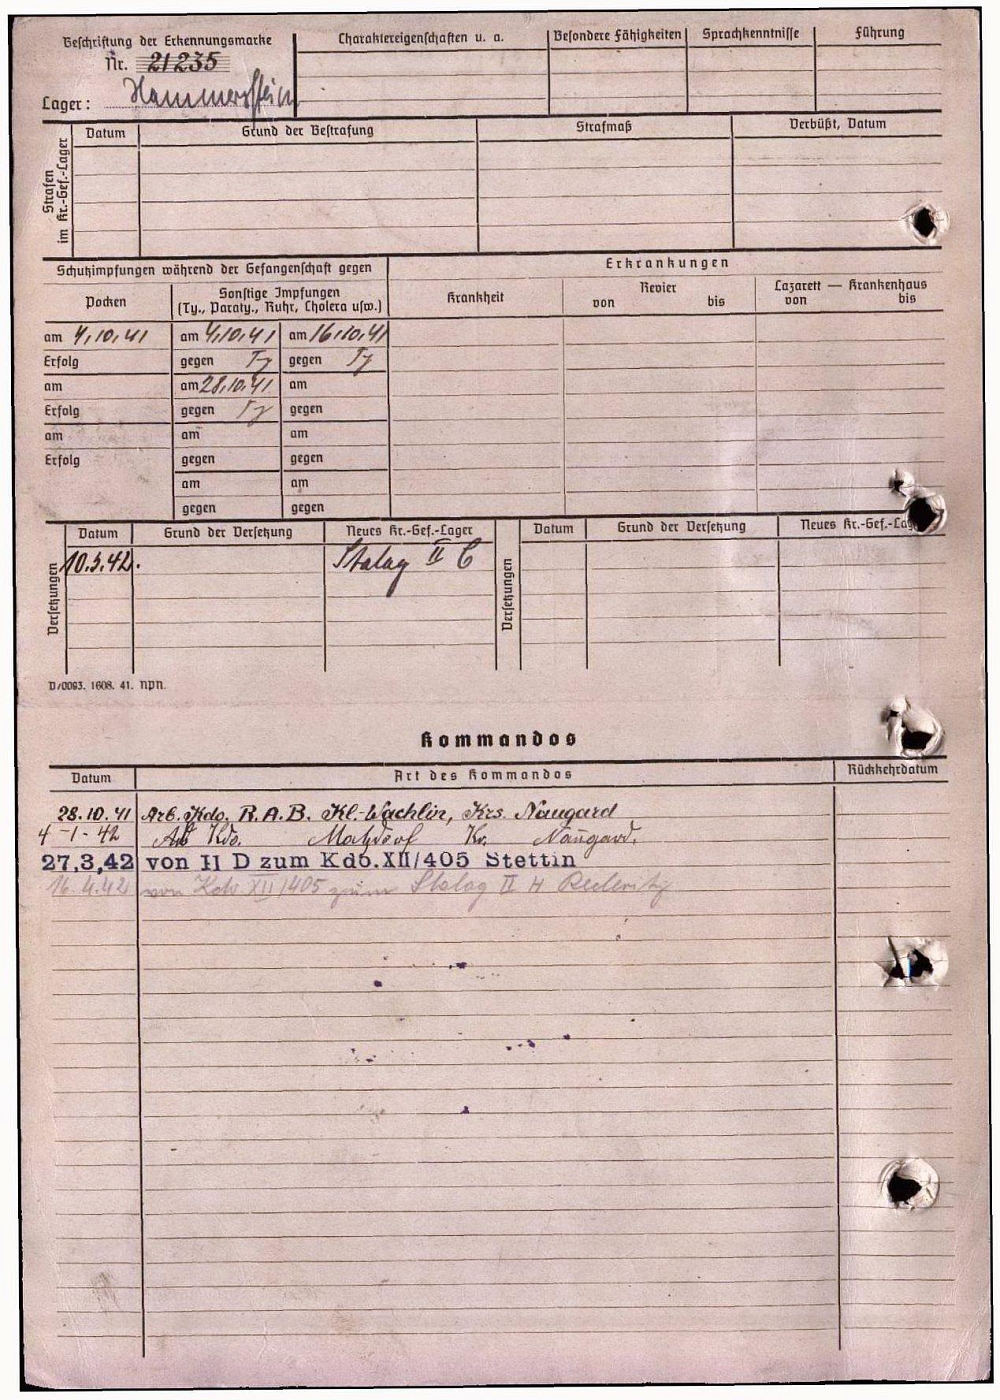 Beschriftung der Erkennungsmarke
Nr. 21235
Lager: Hammerstein
Charaktereigenschaften u. a.
Besondere Fähigkeiten
Sprachkenntnisse
Führung
Strafen im Kr.-Gef.-Lager
Datum
Grund der Bestrafung
Strafmaß
Verbüßt, Datum
Schutzimpfungen während der Gefangenschaft gegen
Erkrankungen
Pocken
Sonstige Impfungen
(Ty., Paraty., Ruhr, Cholera usw.)
Krankheit
Revier
von bis
Lazarett — Krankenhaus
von bis
am 4.10.41 am 4.10.41 am 16.10.41
Erfolg gegen Ty gegen Ty
am am 28.10.41 am
Erfolg gegen Ty gegen
am am am
Erfolg gegen gegen
am am
gegen gegen
Versetzungen
Datum Grund der Versetzung Neues Kr.-Gef.-Lager
10.3.42. Stalag II C
Versetzungen
Datum Grund der Versetzung Neues Kr.-Gef.-Lag
D/0093. 1608. 41. npn.
Kommandos
Datum Art des Kommandos Rückkehrdatum
28.10.41 Arb. Kdo. R.A.B. Kl.-Wachlin, Krs. Naugard
4-1-42 Arb Kdo. Matzdorf Kr. Naugard.
27,3,42 von II D zum Kdo.XII/405 Stettin
16.4.42 von Kdo XII/405 zum Stalag II H Rederitz